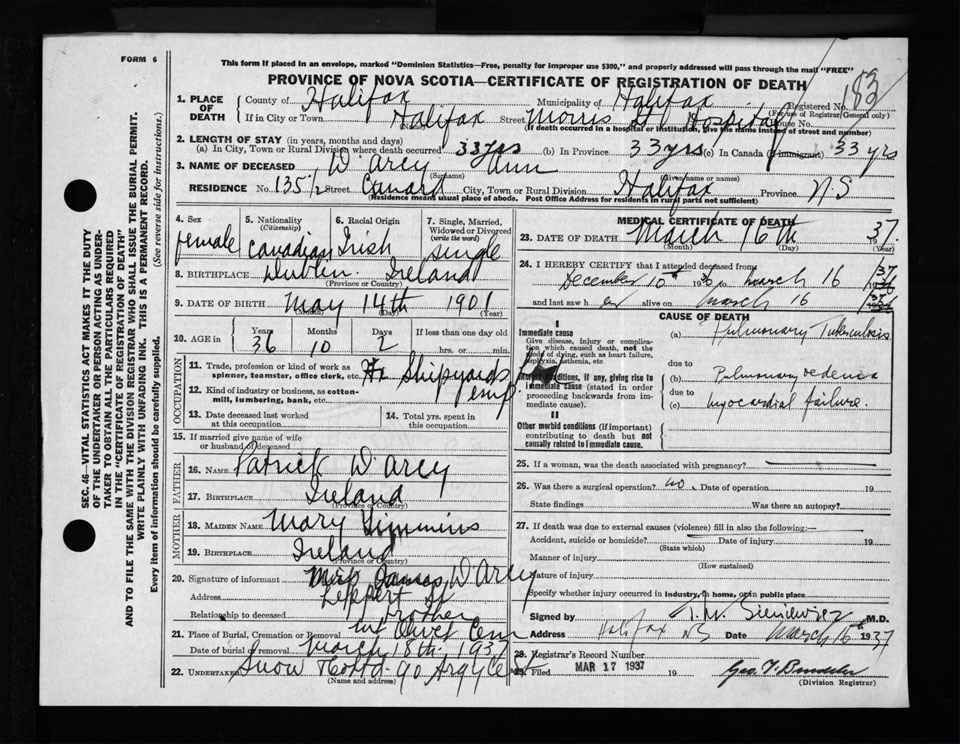 FORM 6
This form if placed in an envelope, marked "Dominion Statistics—Free, penalty for improper use $300," and properly addressed will pass through the mail "FREE"
PROVINCE OF NOVA SCOTIA—CERTIFICATE OF REGISTRATION OF DEATH
183
1. PLACE OF DEATH County of Halifax Municipality of Halifax Registered No.
(For use of Registrar General only)
If in City or Town Halifax Street Morris St Hospital House No.
(If death occurred in a hospital or institution, give the name instead of street and number)
2. LENGTH OF STAY (in years, months and days)
(a) In City, Town or Rural Division where death occurred 33 yrs (b) In Province 33 yrs (c) In Canada (if immigrant) 33 yrs
3. NAME OF DECEASED D'Arcy Ann
(Surname) (Given name or names)
RESIDENCE No. 135 1/2 Street Canard City, Town or Rural Division Halifax Province N.S
(Residence means usual place of abode. Post Office Address for residents in rural parts not sufficient)
4. Sex female
5. Nationality (Citizenship) Canadian
6. Racial Origin Irish
7. Single, Married, Widowed or Divorced (write the word) Single
8. BIRTHPLACE Dublin. Ireland
(Province or Country)
9. DATE OF BIRTH May 14th 1901
(Month) (Day) (Year)
10. AGE in Years 36 Months 10 Days 2 If less than one day old hrs. or min.
OCCUPATION
11. Trade, profession or kind of work as spinner, teamster, office clerk, etc. Hx Shipyards
12. Kind of industry or business, as cotton-mill, lumbering, bank, etc. Emp
13. Date deceased last worked at this occupation
14. Total yrs. spent in this occupation
15. If married give name of wife or husband of deceased
FATHER
16. NAME Patrick D'Arcy
17. BIRTHPLACE Ireland
(Province or Country)
MOTHER
18. MAIDEN NAME Mary Simmins
19. BIRTHPLACE Ireland
20. Signature of informant James D'Arcy
Address Leppert St
Relationship to deceased brother
21. Place of Burial, Cremation or Removal Mt Olivet Cem
Date of burial or removal March 18th 1937
22. UNDERTAKER Snow 90 Argyle
(Name and address)
MEDICAL CERTIFICATE OF DEATH
23. DATE OF DEATH March 16th 1937.
(Month) (Day) (Year)
24. I HEREBY CERTIFY that I attended deceased from
December 10th 1936 to March 16 1937
and last saw her alive on March 16 1937
CAUSE OF DEATH
I
Immediate cause
Give disease, injury or complication which caused death, not the mode of dying, such as heart failure, asphyxia, asthenia, etc.
(a) Pulmonary Tuberculosis
due to
Morbid conditions, if any, giving rise to immediate cause (stated in order proceeding backwards from immediate cause).
(b) Pulmonary oedema
due to
(c) Myocardial failure.
II
Other morbid conditions (if important) contributing to death but not causally related to immediate cause.
25. If a woman, was the death associated with pregnancy?
26. Was there a surgical operation? no. Date of operation 19
State findings Was there an autopsy?
27. If death was due to external causes (violence) fill in also the following:—
Accident, suicide or homicide? Date of injury 19
(State which)
Manner of injury
(How sustained)
Nature of injury
Specify whether injury occurred in industry, in home, or in public place
Signed by M.D.
Address Halifax NS Date March 16th 1937
28. Registrar's Record Number
29. Filed MAR 17 1937
(Division Registrar)
SEC. 46—VITAL STATISTICS ACT MAKES IT THE DUTY
OF THE UNDERTAKER OR PERSON ACTING AS UNDERTAKER
TO OBTAIN ALL THE PARTICULARS REQUIRED
IN THE "CERTIFICATE OF REGISTRATION OF DEATH"
AND TO FILE THE SAME WITH THE DIVISION REGISTRAR WHO SHALL ISSUE THE BURIAL PERMIT.
WRITE PLAINLY WITH UNFADING INK. THIS IS A PERMANENT RECORD.
Every item of information should be carefully supplied. (See reverse side for instructions.)